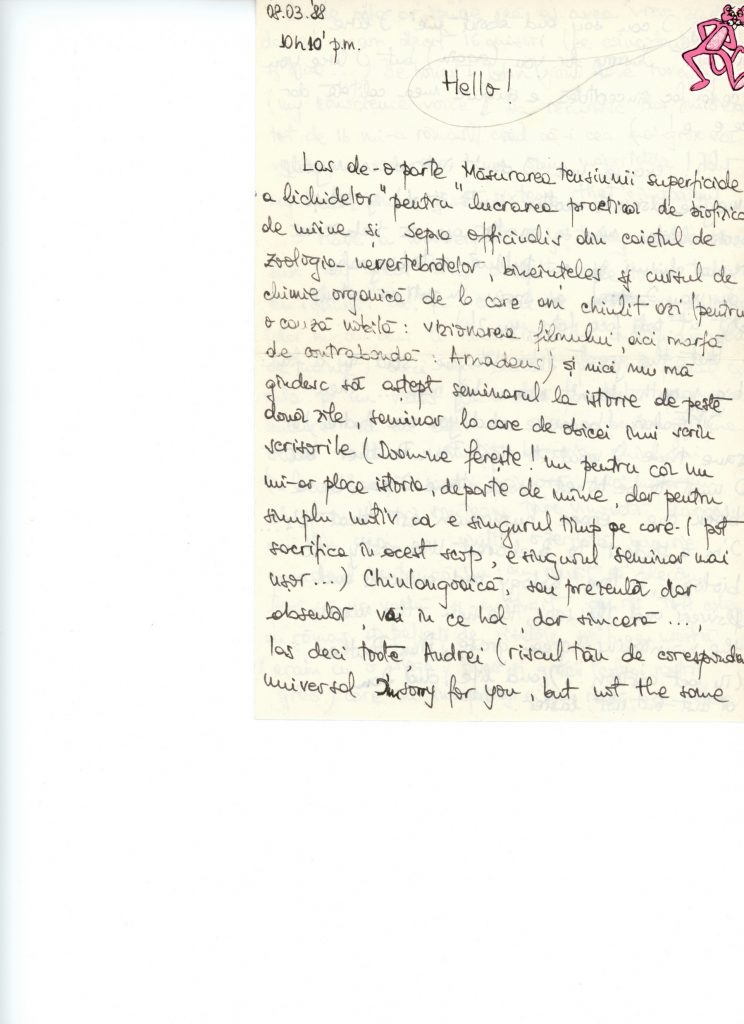 08.03.'88
10h10' p.m.
Hello!
Las de-o parte "Măsurarea tensiunii superficiale
a lichidelor" pentru lucrarea practică de biofizică
de mîine și Sepia officinalis din caietul de
zoologia nevertebratelor, bineînțeles și cursul de
chimie organică de la care am chiulit azi (pentru
o cauză nobilă: vizionarea filmului, aici marfă
de contrabandă: Amadeus) și nici nu mă
gîndesc să aștept seminarul la istorie de peste
două zile, seminar la care de obicei îmi scriu
scrisorile (Doamne ferește! nu pentru că nu
mi-ar place istoria, departe de mine, dar pentru
simplu motiv că e singurul timp pe care-l pot
sacrifica în acest scop, e singurul seminar mai
ușor...) Chiulangoaică, sau prezentă dar
absentă, vai în ce hal, dar sinceră...,
las deci toate, Andrei (riscul tău de corespondent
universal I'm sorry for you, but not the same